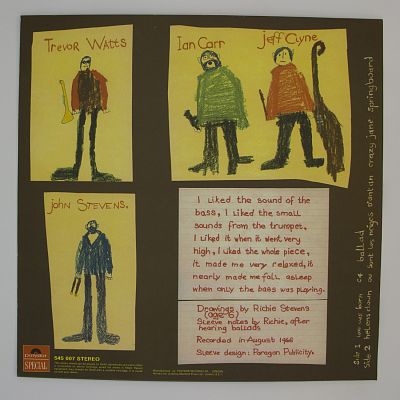 Trevor Watts
Ian Carr
Jeff Clyne
John Stevens.
I liked the sound of the
bass, I liked the small
sounds from the trumpet.
I liked it when it went very
high, I liked the whole piece,
it made me very relaxed, it
nearly made me fall asleep
when only the bass was playing.
Drawings by Richie Stevens
(age 6)
Sleeve notes by Richie, after
hearing ballads
Recorded in August 1966
Sleeve design: Paragon Publicity.
Side 1 c4 ballad
Side 2 helen's clown ou sont les neiges d'antan crazy jane springboard
Polydor
SPECIAL
545 007 STEREO